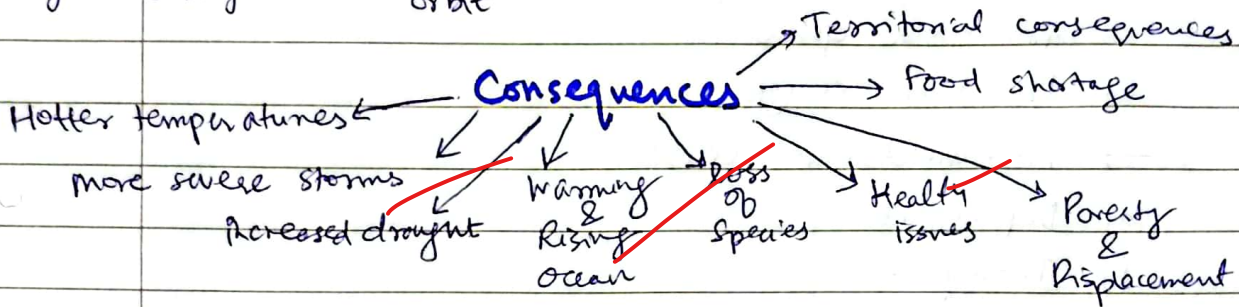 orbit
Territorial consequences
Consequences
Food shortage
Hotter temperatures
more severe storms
increased drought
Warming
&
Rising
ocean
Loss
of
Species
Health
issues
Poverty
&
Displacement